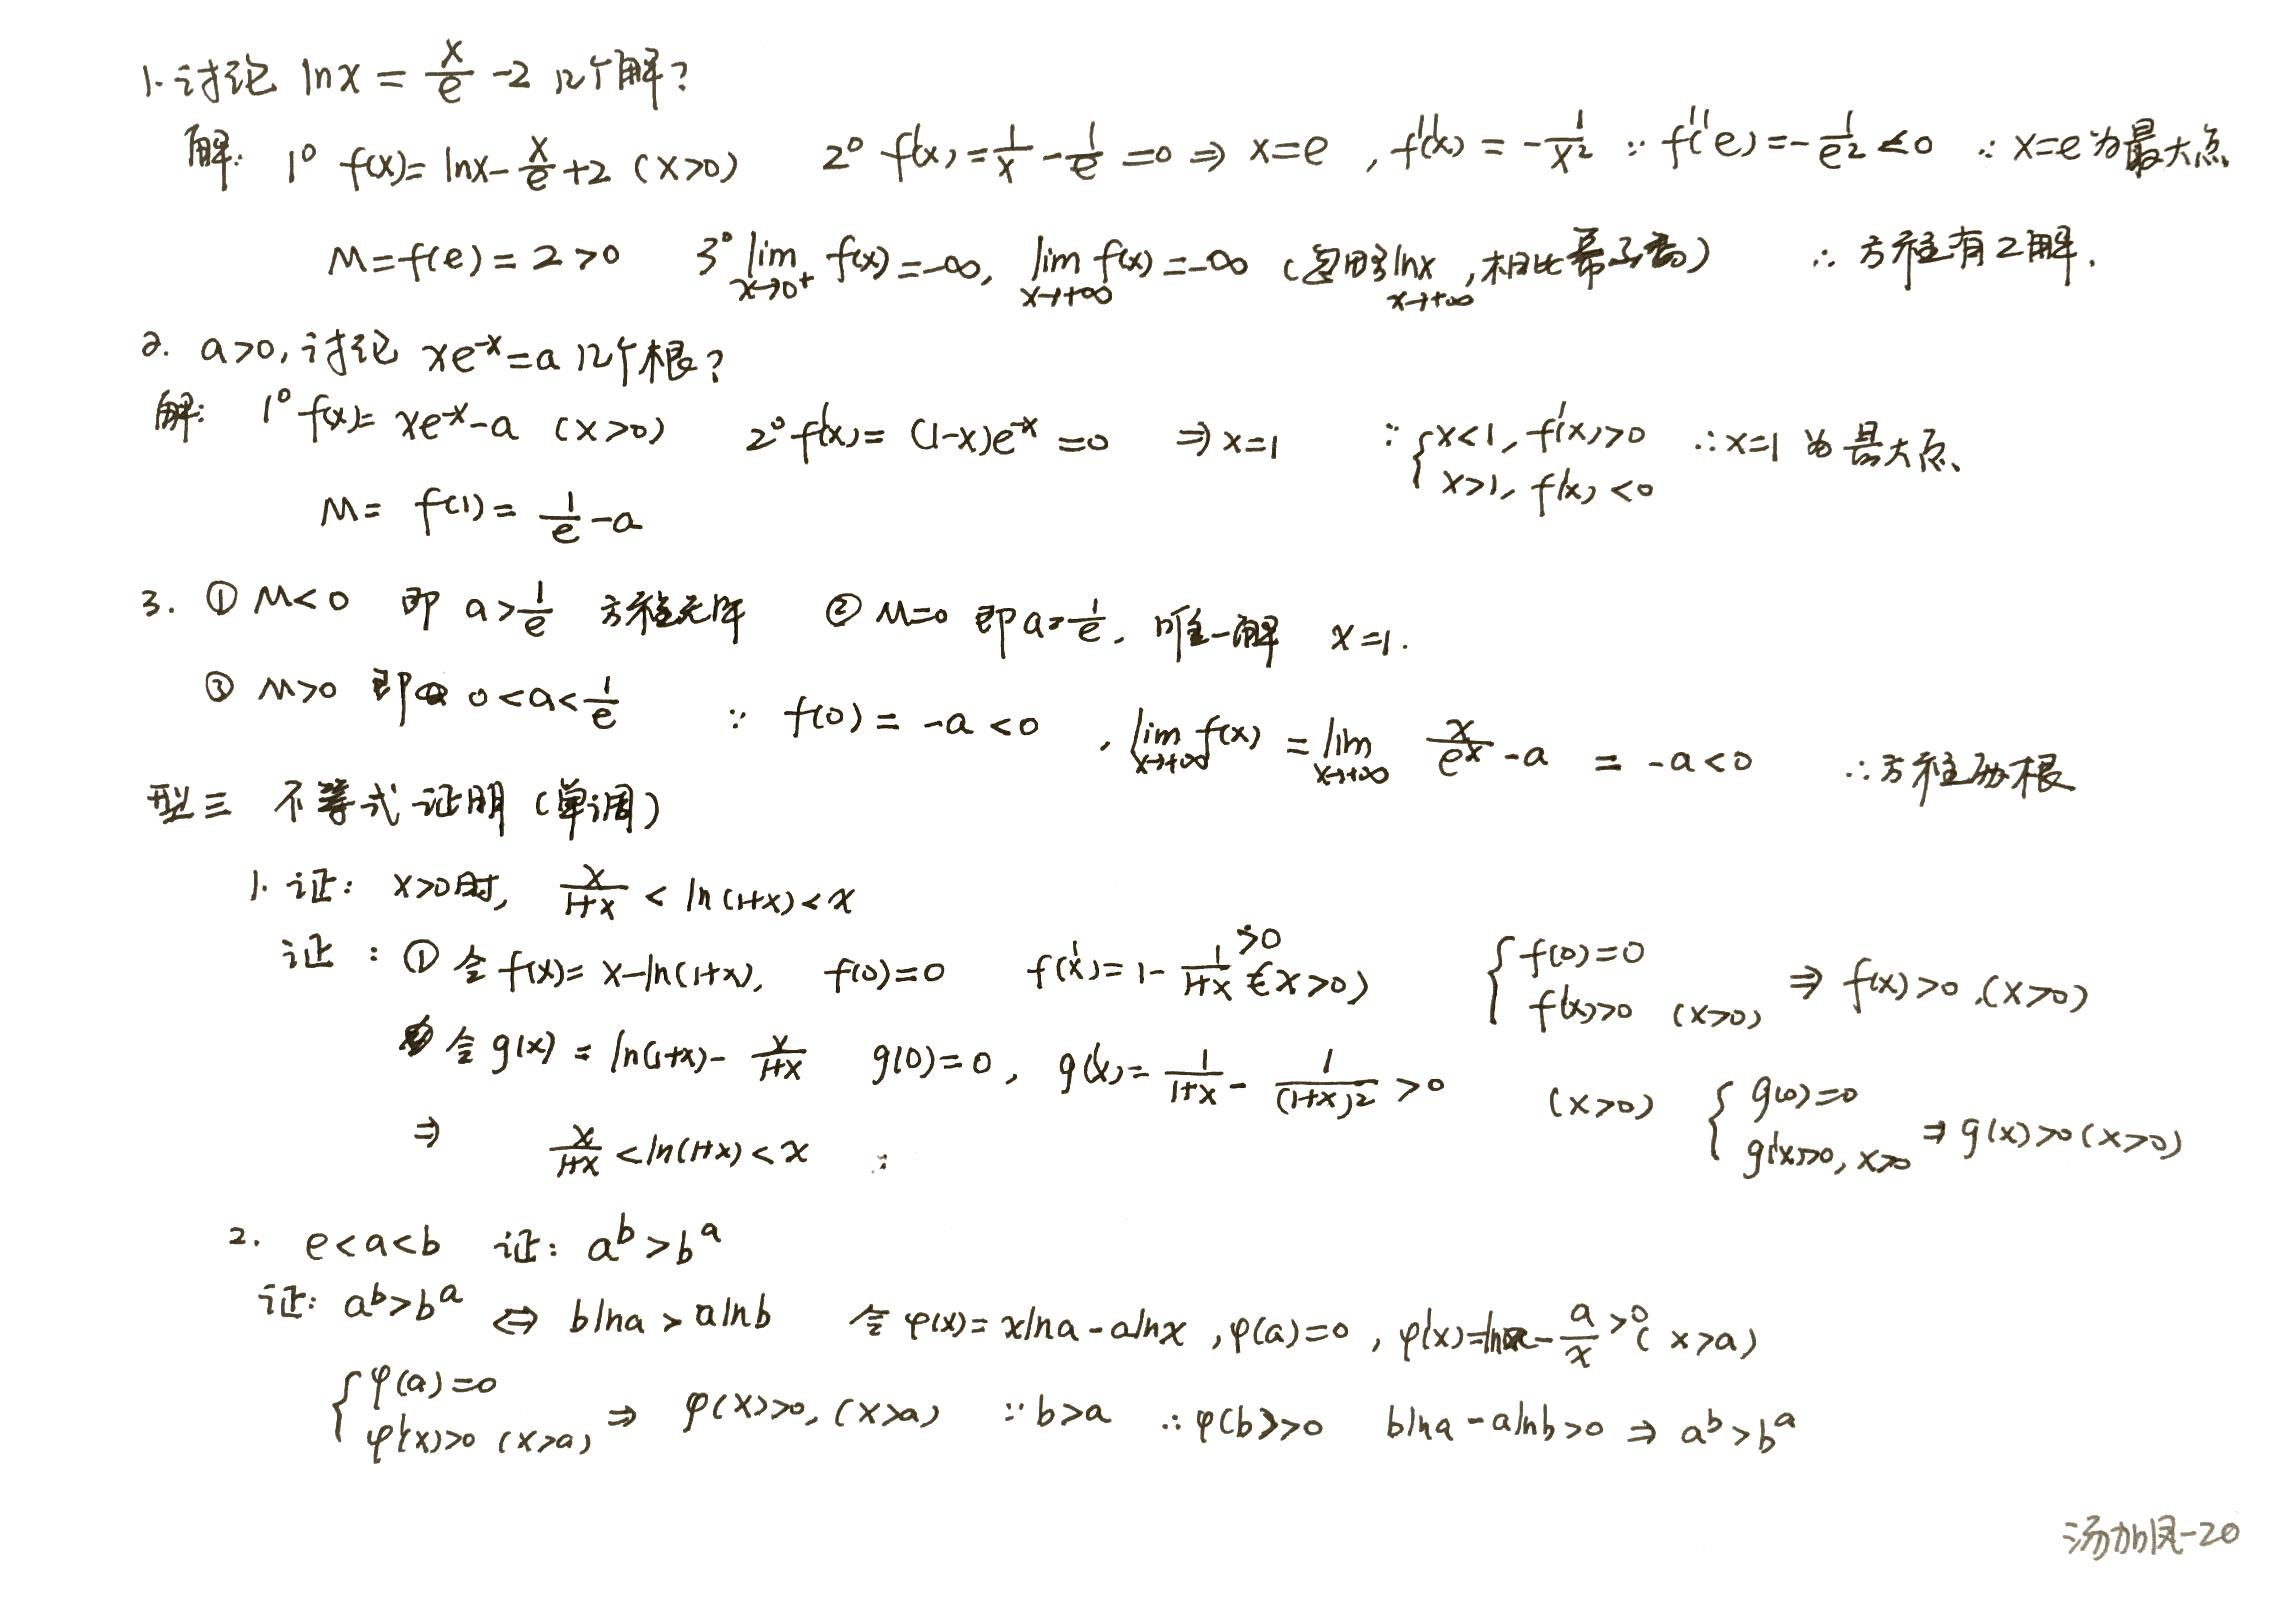 1. 讨论 lnx = x/e - 2 几个解?
解: 1° f(x)= lnx- x/e +2 (x>0) 2° f'(x)= 1/x - 1/e =0 ⇒ x=e , f''(x) = - 1/x² ∵ f''(e)=- 1/e² <0 ∴ x=e为最大点
M=f(e)=2>0 3° lim x→0+ f(x)=-∞, lim x→+∞ f(x)=-∞ (忽略lnx x→+∞, 相比幂不高) ∴ 方程有2解.
2. a>0, 讨论 xe^-x=a 几个根?
解: 1° f(x)= xe^-x-a (x>0) 2° f'(x)= (1-x)e^-x =0 ⇒ x=1 ∵ { x<1, f'(x)>0 x>1, f'(x)<0 ∴x=1 为最大点
M= f(1)= 1/e -a
3. ① M<0 即 a> 1/e 方程无解 ② M=0 即a= 1/e. 唯一解 x=1.
③ M>0 即 0<a< 1/e ∵ f(0) = -a <0 , lim x→+∞ f(x) = lim x→+∞ x/e^x -a = -a<0 ∴方程两根
型三 不等式证明(单调)
1. 证: x>0时, x/1+x < ln(1+x)<x
证: ① 令f(x)= x-ln(1+x), f(0)=0 f'(x)=1- 1/1+x >0 (x>0) { f(0)=0 f'(x)>0 (x>0) ⇒ f(x)>0.(x>0)
令g(x) = ln(1+x)- x/1+x g(0)=0, g'(x)= 1/1+x - 1/(1+x)² >0 (x>0) { g(0)=0 g'(x)>0, x>0 ⇒ g(x)>0(x>0)
⇒ x/1+x <ln(1+x)<x
2. e<a<b 证: a^b>b^a
证: a^b>b^a ⇔ blna > alnb 令 φ(x)=xlna-alnx, φ(a)=0, φ'(x)=lna- a/x >0 (x>a)
{ φ(a)=0 φ'(x)>0 (x>a) ⇒ φ(x)>0, (x>a) ∵b>a ∴φ(b)>0 blna-alnb>0 ⇒ a^b>b^a
汤加凤-20